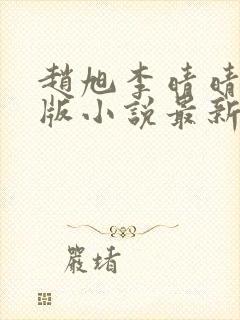 趙旭李晴晴
版小說最新
嚴堵